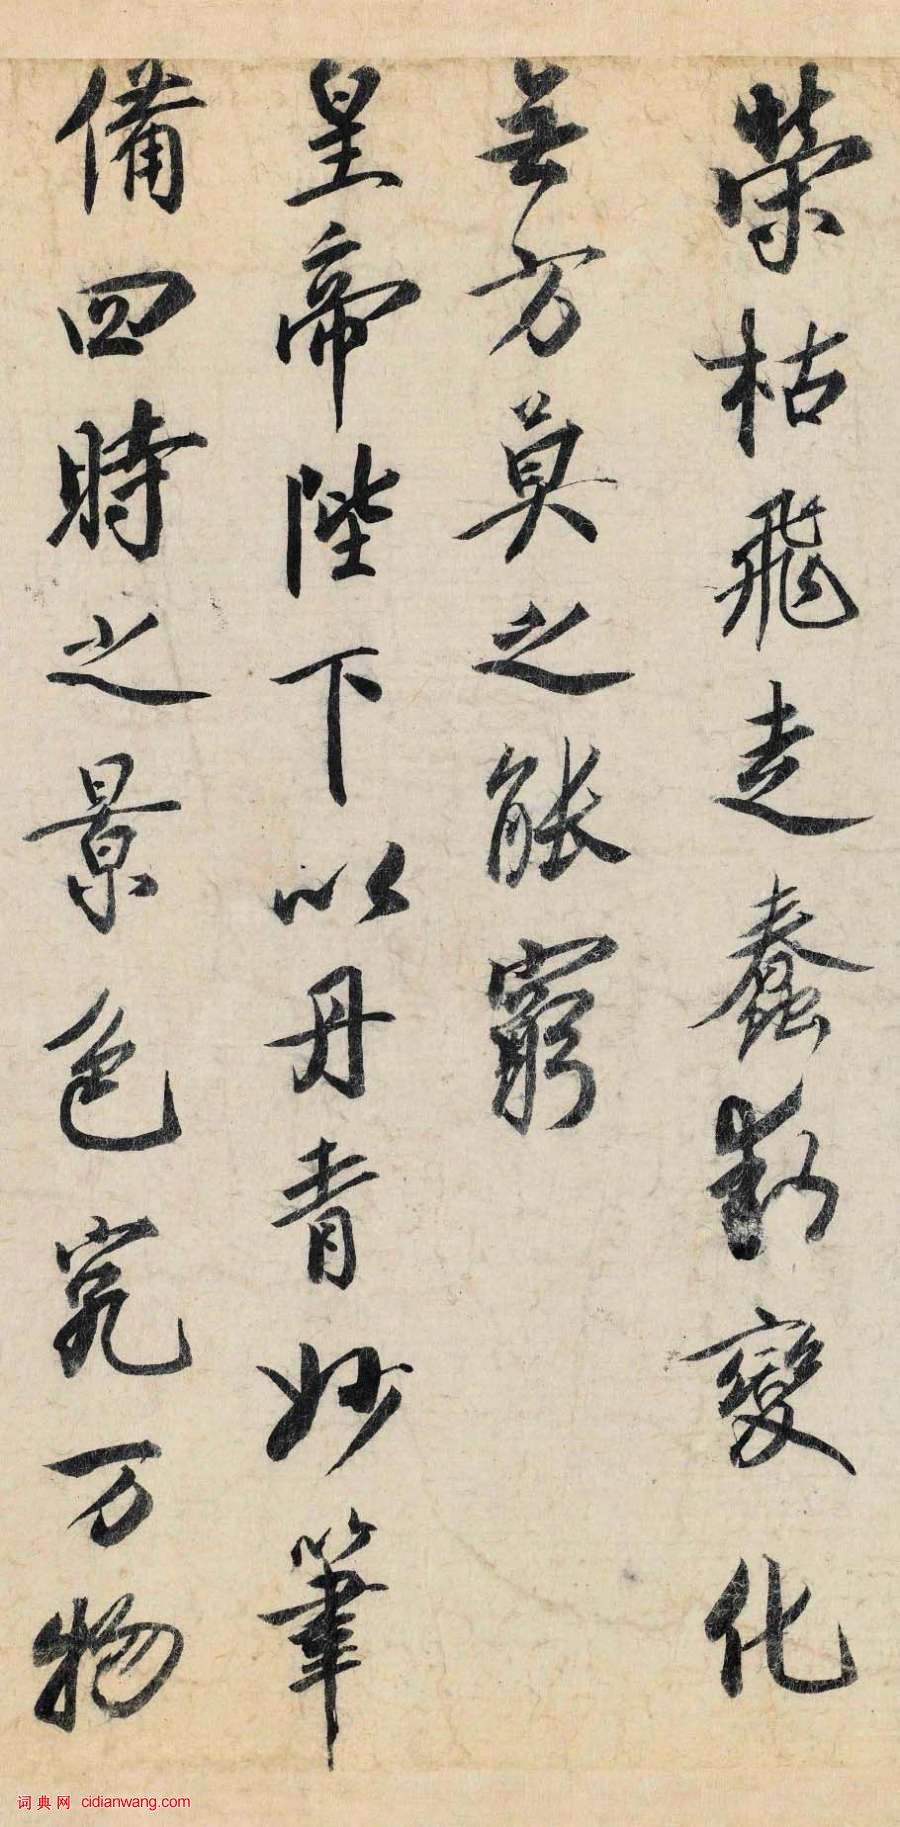 榮枯飛走蠢動變化
無方莫之能窮
皇帝陛下以丹青妙筆
備四時之景色究万物
词典网 cidianwang.com